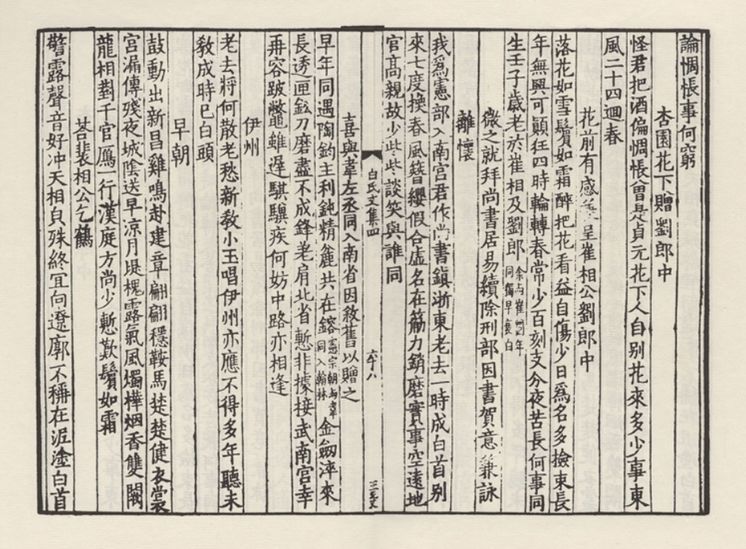 論惆悵事何窮
杏園花下贈劉郎中
怪君把酒偏惆悵曾是貞元花下人自別花來多少事東
風二十四迴春
花前有感兼呈崔相公劉郎中
落花如雪鬢如霜醉把花看益自傷少日爲名多撿束長
年無興可顛狂四時輪轉春常少百刻支分夜苦長何事同
生壬子歲老於崔相及劉郎
余与崔劉年
同獨早衰白
微之就拜尚書居易續除刑部因書賀意兼詠
離懷
我爲憲部入南宮君作尚書鎮浙東老去一時成白首別
來七度換春風簪纓假合虛名在筋力銷磨實事空遠地
官高親故少些些談笑與誰同
白氏文集四
六十八
喜與韋左丞同入南省因敘舊以贈之
早年同遇陶鈞主利鈍精麁共在鎔
憲宗朝与韋
同入翰林
金劒淬來
長透匣鉛刀磨盡不成鋒差肩北省慙非據接武南宮幸
再容跛鼈雖遲騏驥疾何妨中路亦相逢
伊州
老去將何散老愁新教小玉唱伊州亦應不得多年聽未
教成時已白頭
早朝
鼓動出新昌雞鳴赴建章翩翩穩鞍馬楚楚健衣裳
宮漏傳殘夜城陰送早涼月堤槐露氣風燭樺烟香雙闕
龍相對千官鴈一行漢庭方尚少慙歎鬢如霜
荅裴相公乞鶴
警露聲音好冲天相皃殊終宜向遼廓不稱在泥塗白首